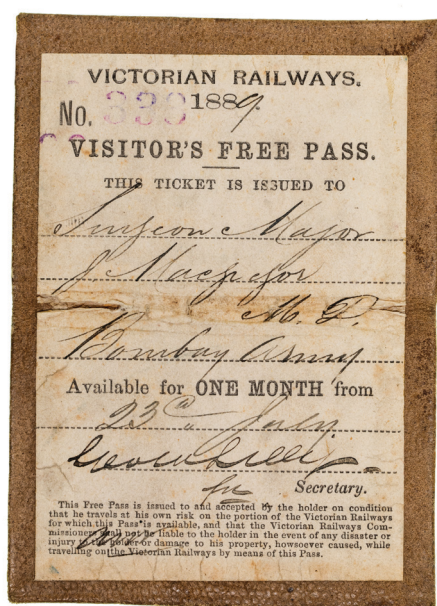 VICTORIAN RAILWAYS.
No. 339 1889.
VISITOR'S FREE PASS.
THIS TICKET IS ISSUED TO
Surgeon Major
J Macgregor
M. D.
Bombay Army
Available for ONE MONTH from
23rd July
for Secretary.
This Free Pass is issued to and accepted by the holder on condition
that he travels at his own risk on the portion of the Victorian Railways
for which this Pass is available, and that the Victorian Railways Com-
missioners shall not be liable to the holder in the event of any disaster or
injury to the holder or damage to his property, howsoever caused, while
travelling on the Victorian Railways by means of this Pass.